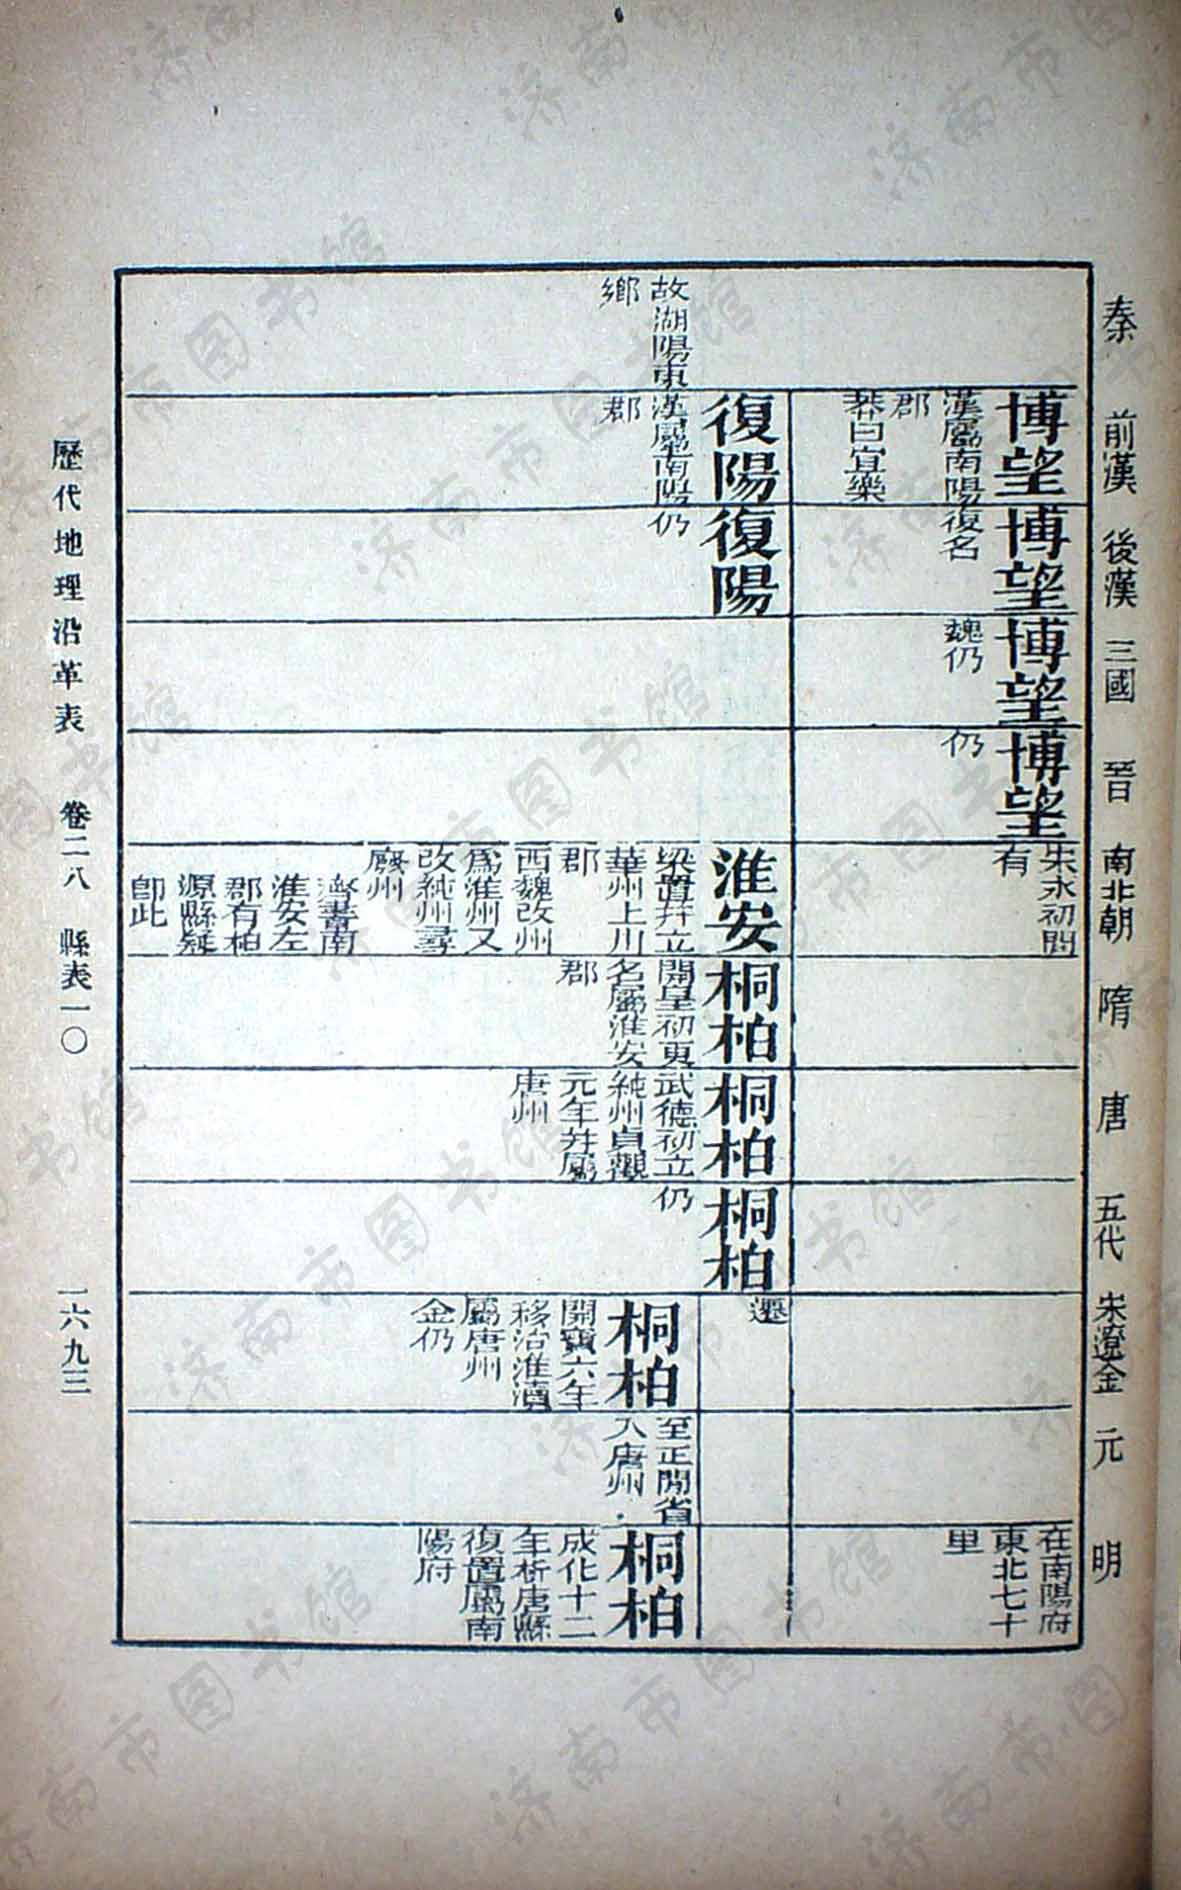 秦 前漢 後漢 三國 晉 南北朝 隋 唐 五代 宋遼金 元 明
博望
漢屬南陽
郡
莽曰宜樂
博望
復名
博望
魏仍
博望
仍
宋永初間
有
在南陽府
東北七十
里
故湖陽東
鄉
復陽
漢屬南陽
郡
復陽
仍
淮安
梁置幷立
華州上川
郡
西魏改州
爲淮州又
改純州尋
廢州
齊書南
淮安左
郡有柏
源縣疑
卽此
桐柏
開皇初更
名屬淮安
郡
桐柏
武德初立
純州貞觀
元年幷屬
唐州
桐柏
仍
遷
桐柏
開寶六年
移治淮瀆
屬唐州
金仍
至正間省
入唐州
桐柏
成化十二
年析唐縣
復置屬南
陽府
歷代地理沿革表 卷二八 縣表一〇 一六九三
济南市图书馆